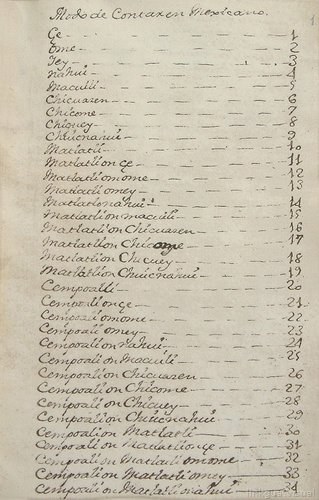 Modo de Contar en Mexicano.
1
Çe — 1
Ome — 2
Yey — 3
Nahui — 4
Macuili — 5
Chicuaçen — 6
Chicome — 7
Chicuey — 8
Chiucnahui — 9
Matlatli — 10
Matlatlionçe — 11
Matlatliomome — 12
Matlatliomey — 13
Matlatlionahui — 14
Matlatlion macuili — 15
Matlatlion Chicuaçen — 16
Matlatlion Chicome — 17
Matlatlion Chicuey — 18
Matlatlion Chiucnahui — 19
Cempoalli — 20
Cempoalionçe — 21
Cempoaliomome — 22
Cempoaliomey — 23
Cempoalion nahui — 24
Cempoalion Macuili — 25
Cempoalion Chicuaçen — 26
Cempoalion Chicome — 27
Cempoalion Chicuey — 28
Cempoalion Chiucnahui — 29
Cempoalion Matlatli — 30
Cempoalion Matlatlionçe — 31
Cempoalion Matlatliomome — 32
Cempoalion Matlatliomey — 33
Cempoalion Matlatlion nahui — 34